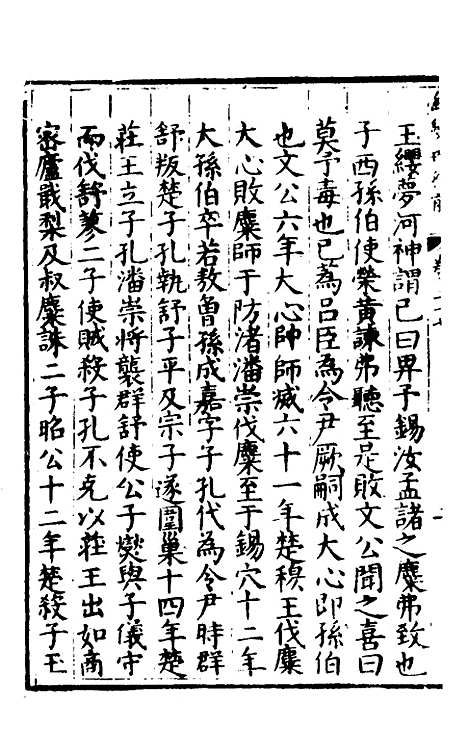 玉纓夢河神謂已曰畀予錫汝孟諸之麋弗致也
子西孫伯使榮黃諫弗聽至是敗文公聞之喜曰
莫予毒也已蒍呂臣為令尹厥嗣成大心即孫伯
也文公六年大心帥師滅六十一年楚穆王伐麋
大心敗麋師于防渚潘崇伐麋至于錫穴十二年
大孫伯卒若敖曾孫成嘉字子孔代為令尹時群
舒叛楚子孔執舒子平及宗子遂圍巢十四年楚
莊王立子孔潘崇將襲群舒使公子燮與子儀守
而伐舒蓼二子使賊殺子孔不克以莊王出如商
密廬戢梨及叔麋誅二子昭公十二年楚殺子玉